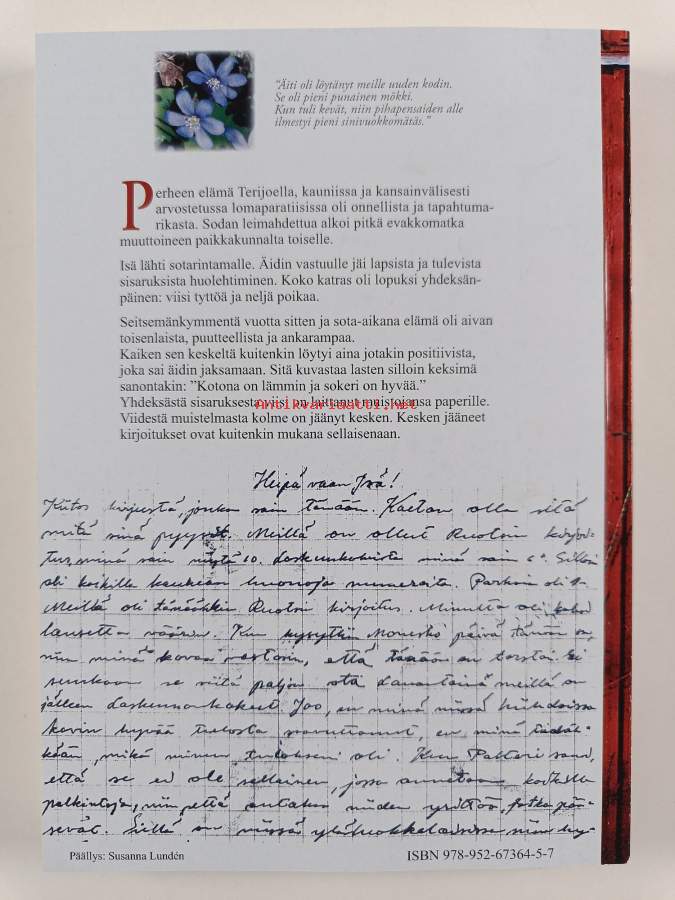 "Äiti oli löytänyt meille uuden kodin.
Se oli pieni punainen mökki.
Kun tuli kevät, niin pihapensaiden alle
ilmestyi pieni sinivuokkomätäs."
Perheen elämä Terijoella, kauniissa ja kansainvälisesti
arvostetussa lomaparatiisissa oli onnellista ja tapahtuma-
rikasta. Sodan leimahdettua alkoi pitkä evakkomatka
muuttoineen paikkakunnalta toiselle.
Isä lähti sotarintamalle. Äidin vastuulle jäi lapsista ja tulevista
sisaruksista huolehtiminen. Koko katras oli lopuksi yhdeksän-
päinen: viisi tyttöä ja neljä poikaa.
Seitsemänkymmentä vuotta sitten ja sota-aikana elämä oli aivan
toisenlaista, puutteellista ja ankarampaa.
Kaiken sen keskeltä kuitenkin löytyi aina jotakin positiivista,
joka sai äidin jaksamaan. Sitä kuvastaa lasten silloin keksimä
sanontakin: "Kotona on lämmin ja sokeri on hyvää."
Yhdeksästä sisaruksesta viisi on laittanut muistojansa paperille.
Antikvariaatti.net
Viidestä muistelmasta kolme on jäänyt kesken. Kesken jääneet
kirjoitukset ovat kuitenkin mukana sellaisenaan.
Heipä vaan Isä!
Kiitos kirjeestä, jonka sain tänään. Koetan olla sitä
mitä sinä pyysit. Meillä on ollut Ruotsin
minä sain 10. Laskennkokeista minä sain
oli kaikilla numeroita. Parhain oli
Meillä oli tänäänkin Ruotsin kirjoitus. Minulla oli kaksi
lausetta väärin. Kun kysyttiin Monesko päivä tänään on,
niin minä vastasin, että tänään on torstai. Ei
se siitä paljon lauantaina meillä on
jälleen laskennonkokeet. Joo, en minä niissä hiihdoissa
kovin hyvää tulosta saavuttanut, en minä tiedä-
kään, mikä minun tulokseni oli. Kun Patteri sanoi,
että se ei ole sellainen, jossa annetaan kaikille
palkintoja, niin että antakaa niiden yrittää, jotka pää-
sevät. Siellä on niissä yläluokkalaisissa niin hy-
Päällys: Susanna Lundén
ISBN 978-952-67364-5-7